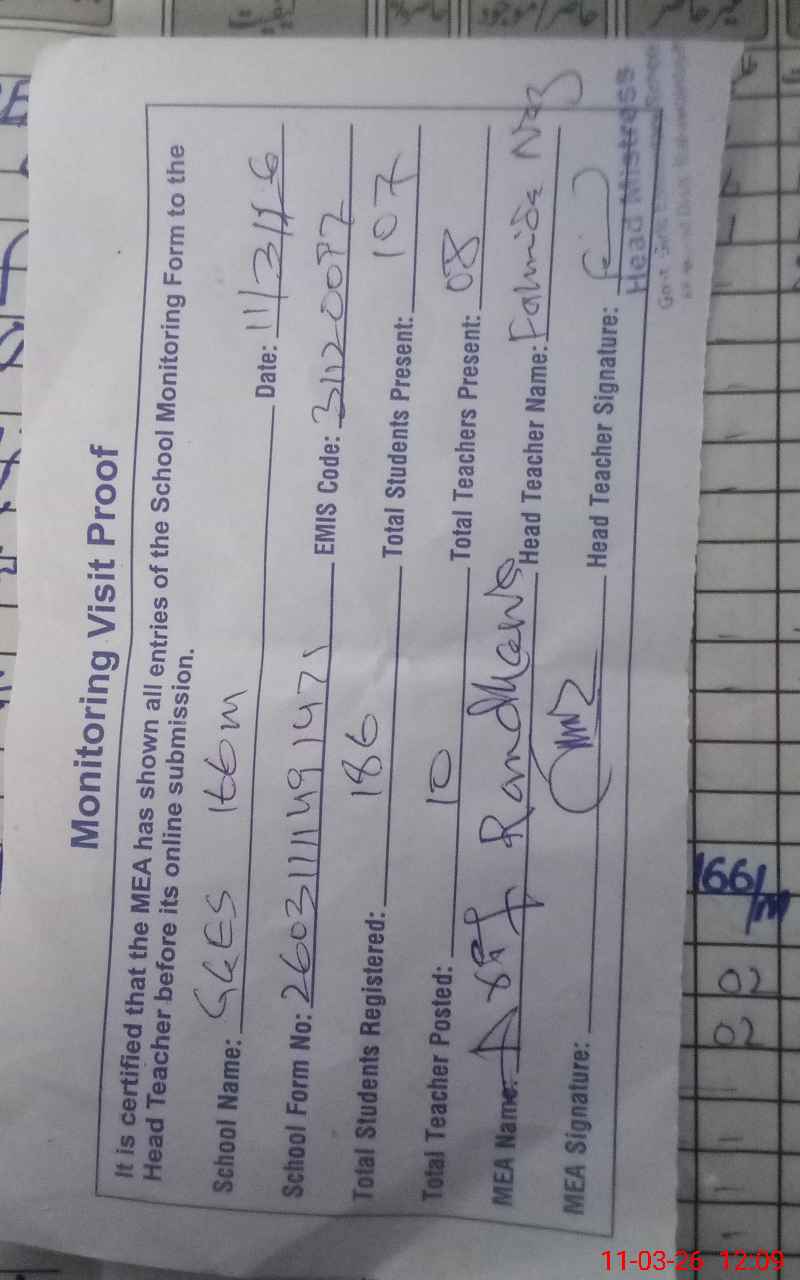 Monitoring Visit Proof
It is certified that the MEA has shown all entries of the School Monitoring Form to the
Head Teacher before its online submission.
School Name: GGES 166m Date: 11/3/26
School Form No: 26031111491471 EMIS Code: 31120097
Total Students Registered: 186 Total Students Present: 107
Total Teacher Posted: 10 Total Teachers Present: 08
MEA Name: Asif Randhawa Head Teacher Name: Fahmida Naz
MEA Signature: Head Teacher Signature:
Head Mistress
Govt Girls
166/m
02
02
11-03-26 12:09